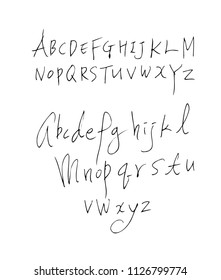 ABCDEFGHIJKLM
NOPQRSTUVWXYZ
Abcdefghijkl
Mnopqrstu
vwxyz
shutterstock.com · 1126799774